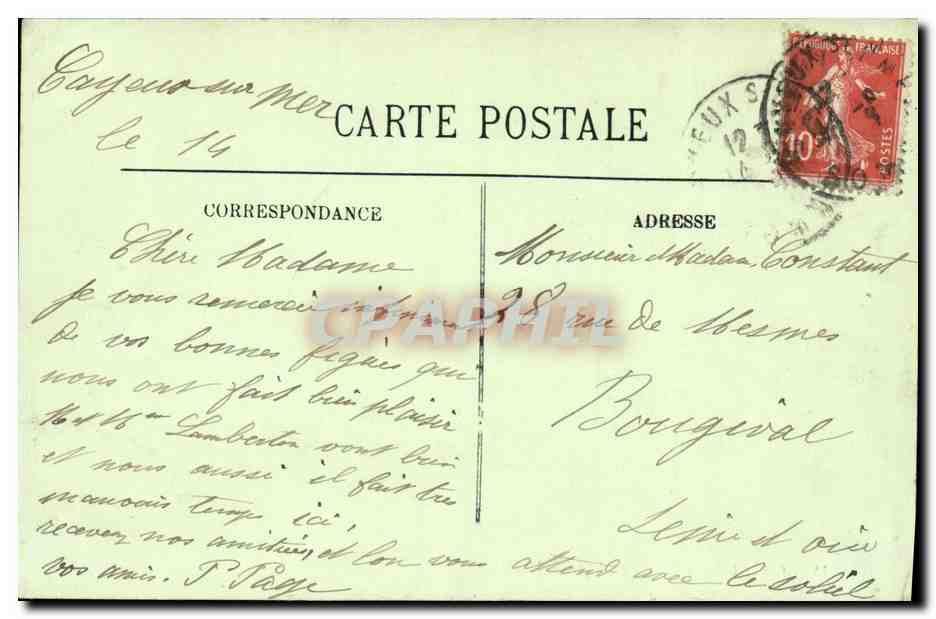 Cayeux-sur Mer
le 14
CARTE POSTALE
CORRESPONDANCE
Chère Madame
je vous remercie infiniment
de vos bonnes figues qui
nous ont fait bien plaisir
M et Mme Lamberton vont bien
et nous aussi il fait tres
mauvais temps ici,
recevez nos amitiés, et lon vous attend avec le soleil
vos amis. P. Page
ADRESSE
Monsieur Madam Constant
38 rue de Mesmes
Bougival
Seine et oise
EUX S
12
10
POSTES
CPAPHIL